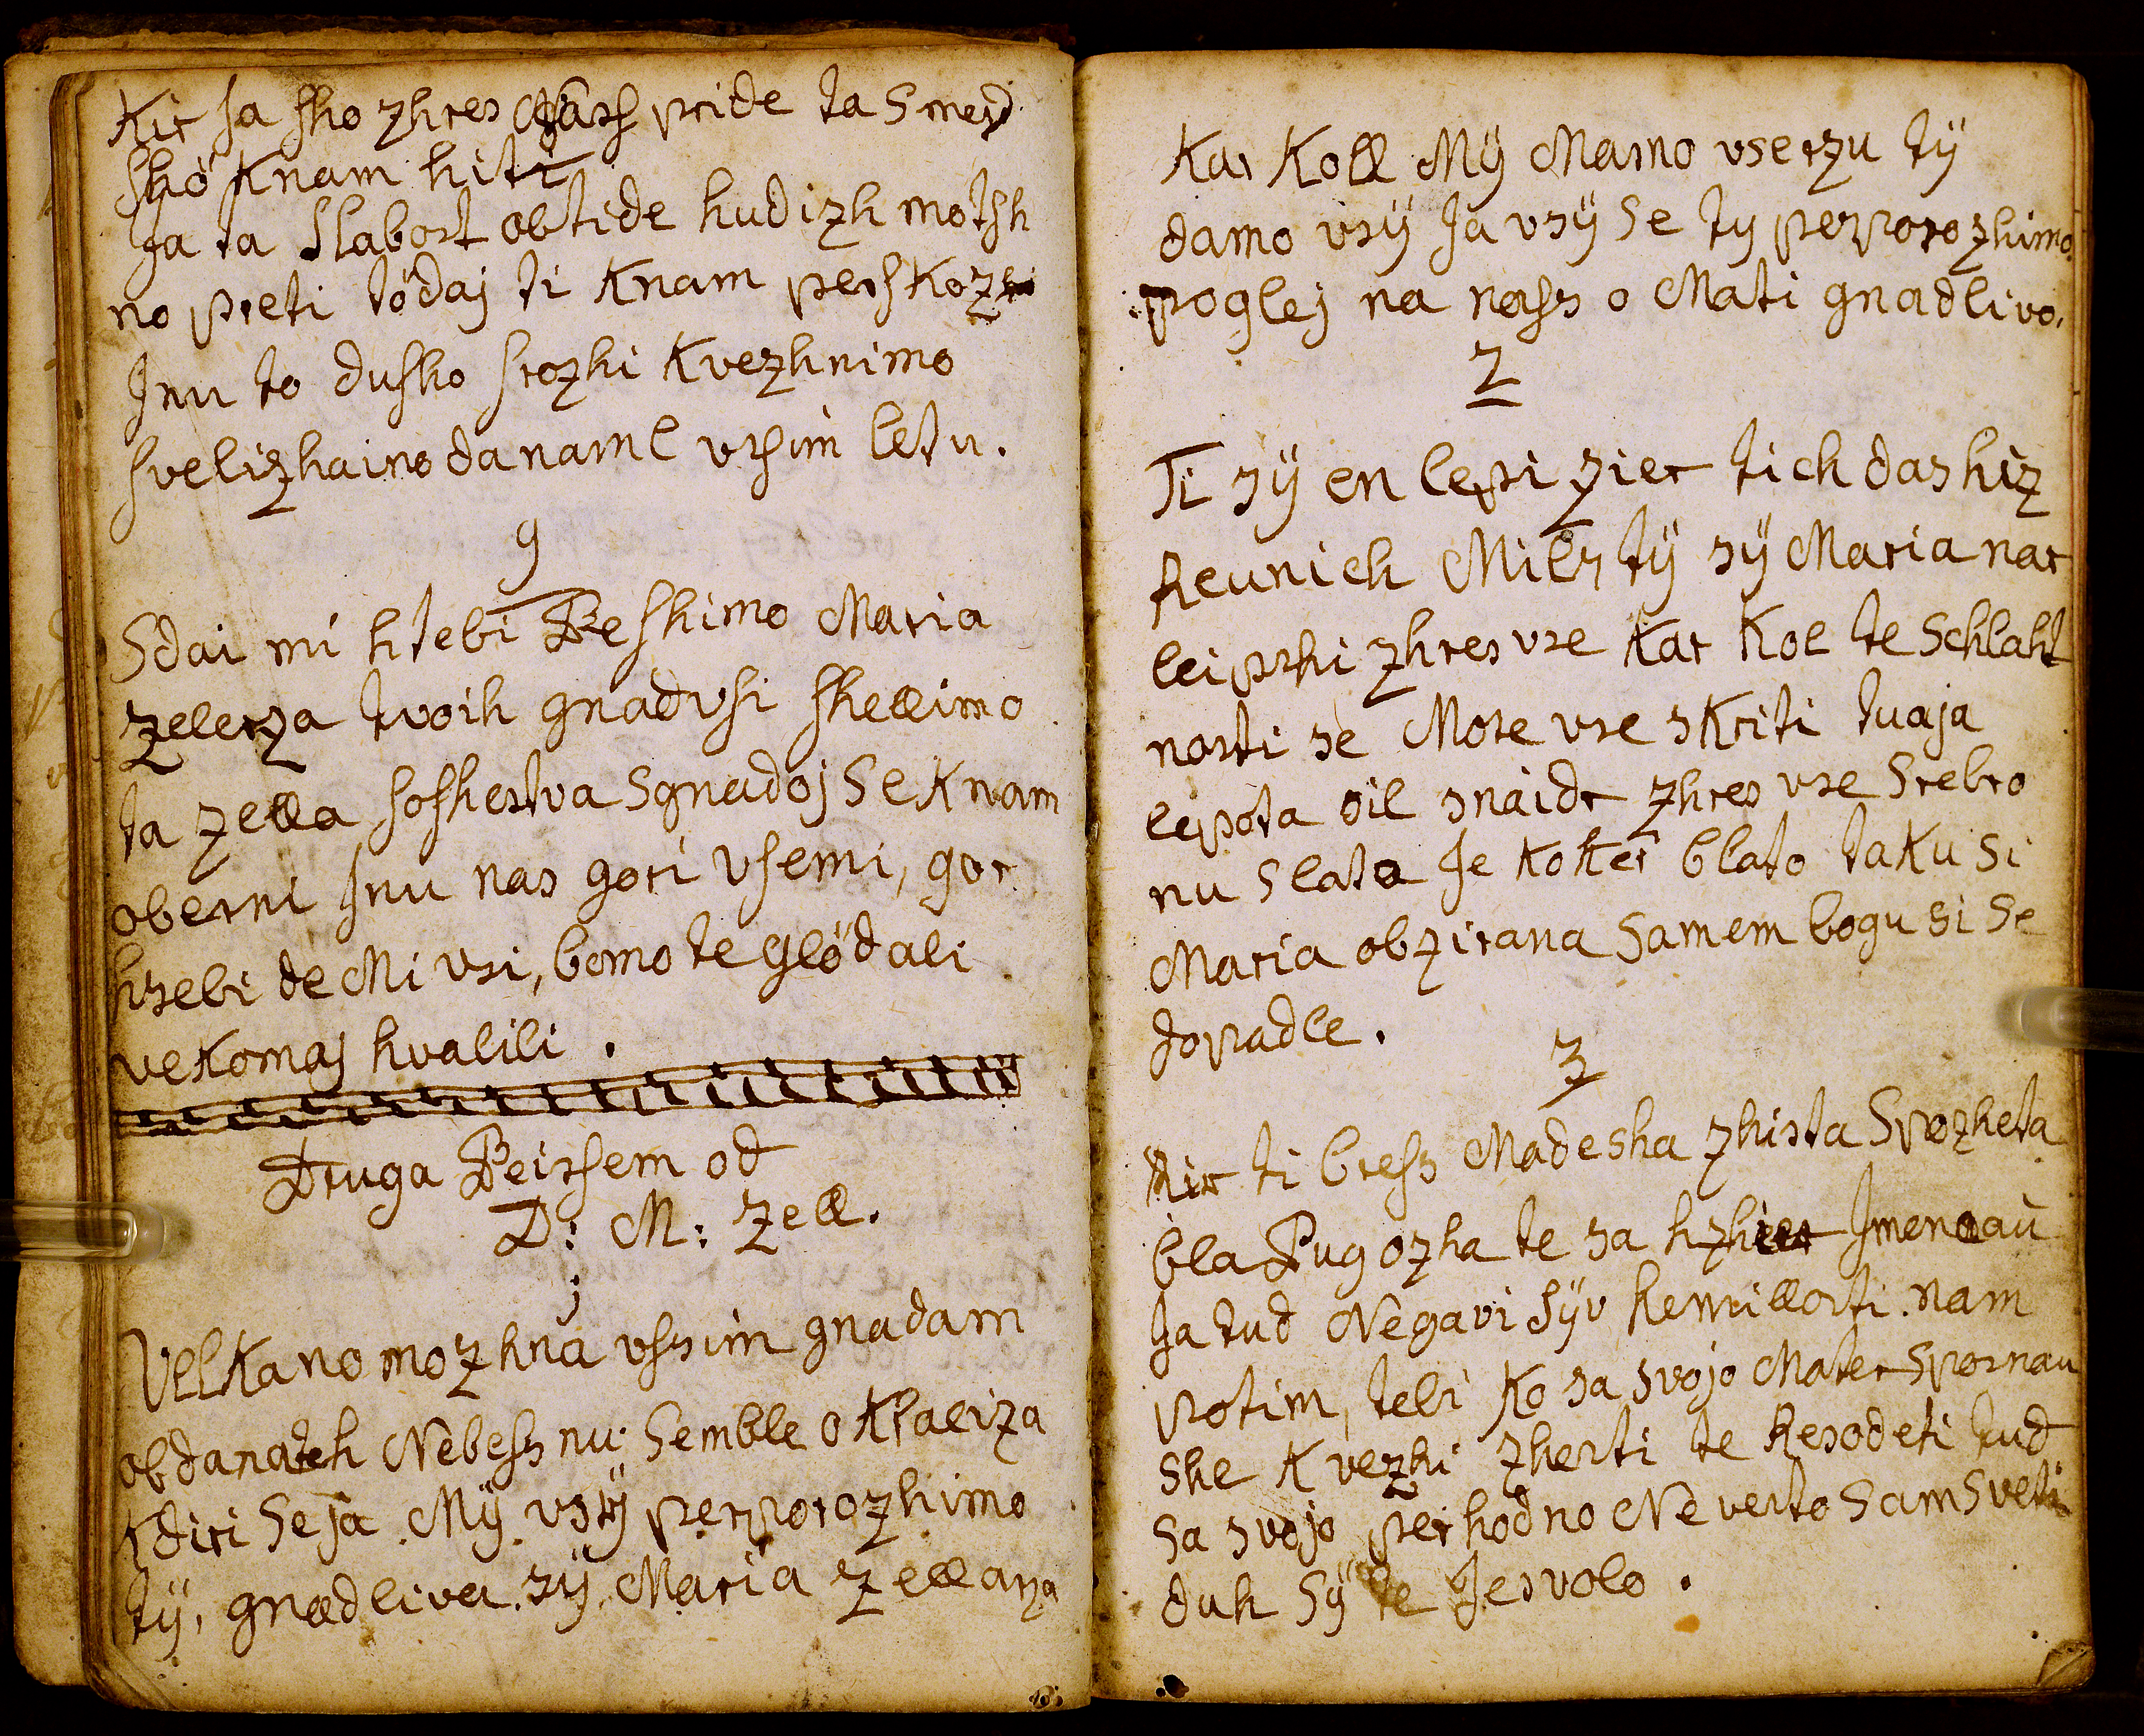 Kir ſa ſho zhres Naſs pride ta Smerd
ſhö Knam hiti
Ja ta Slabost obtide hudizh motſh
no preti tödaj ti Knam perſkozhi
Inu to duſho ſrozhi Kvezhnimo
ſvelizhaino da naml vſim letu.
9
Sdai mi htebi Beſhimo Maria
Zelerza tvoih gnad vſi ſhellimo
ta zella ſoſhestva Sgnadoj Se Knam
oberni Inu nas gori vſemi, gor
hsebi de Mi vsi, bomo te glödali
veKomaj hvalili.
Druga Peirſem od
D: M: Zell.
j
VelKa no mozhna vſsim gnadam
obdana teh Nebeſs nu Semble o Kraliza
Kdiri Se ja Mÿ vsÿ perporozhimo
tÿ, gnadliva sÿ Maria Zellarza
Kar Koll Mÿ Mamo vserzu tÿ
damo vsÿ Ja vsÿ Se ty perporozhimo.
poglej na naſs o Mati gnadlivo.
2
Ti sÿ en lepi zier tich dashiz
Reunich Mils tÿ sÿ Maria nar
leipshi zhres vse Kar Kol te Schlaht
nosti se More vse sKriti tuaja
lepota oil snaidr zhres vse Srebro
nu Slato Je Koker blato taKu Si
Maria obzirana Samem bogu si Se
dopadle.
3
Kir ti breſs Madesha zhista Spozheta
bla Pug ozha te sa hzhier Imenoau
Ja tud Negavi Sÿv Remillosti nam
potim, tebi Ko sa svojo Mater Sposnau
She Kvezhi zhersti te Resodeti tud
Sa svojo perhodno Nevesto Sam Sveti
duh Sÿ te Jesvolo.